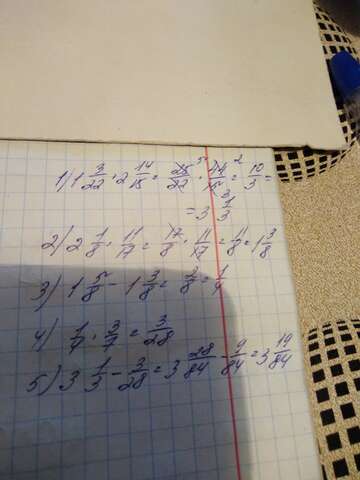 1) 1 3/22 · 2 14/15 = 25/22 · 44/15 = 10/3 =
= 3 1/3
2) 2 1/8 · 11/17 = 17/8 · 11/17 = 11/8 = 1 3/8
3) 1 5/8 - 1 3/8 = 2/8 = 1/4
4) 1/4 · 3/7 = 3/28
5) 3 1/3 - 3/28 = 3 28/84 - 9/84 = 3 19/84